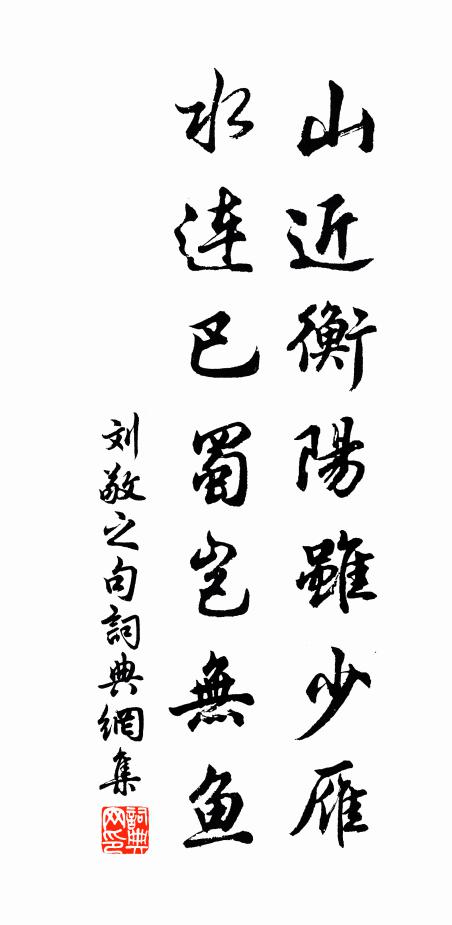 山近衡陽雖少雁
水連巴蜀豈無鱼
刘敬之句詞典網集
詞典网印